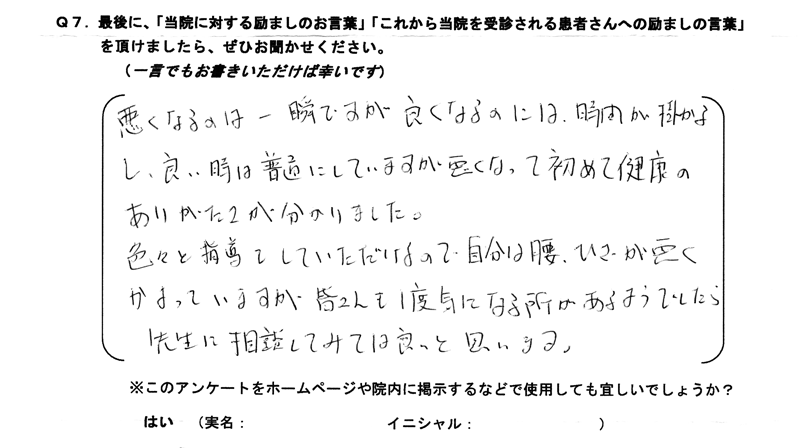 Q7．最後に、「当院に対する励ましのお言葉」「これから当院を受診される患者さんへの励ましの言葉」
を頂けましたら、ぜひお聞かせください。
（一言でもお書きいただけば幸いです）
悪くなるのは一瞬ですが良くなるのには、時間が掛かる
し、良い時は普通にしていますが悪くなって初めて健康の
ありがたさが分かりました。
色々と指導していただけるので自分は腰、ひざが悪く
かよっていますが皆さんも1度気になる所があるようでしたら
先生に相談してみては良いと思います。
※このアンケートをホームページや院内に掲示するなどで使用しても宜しいでしょうか？
はい （実名： イニシャル： ）